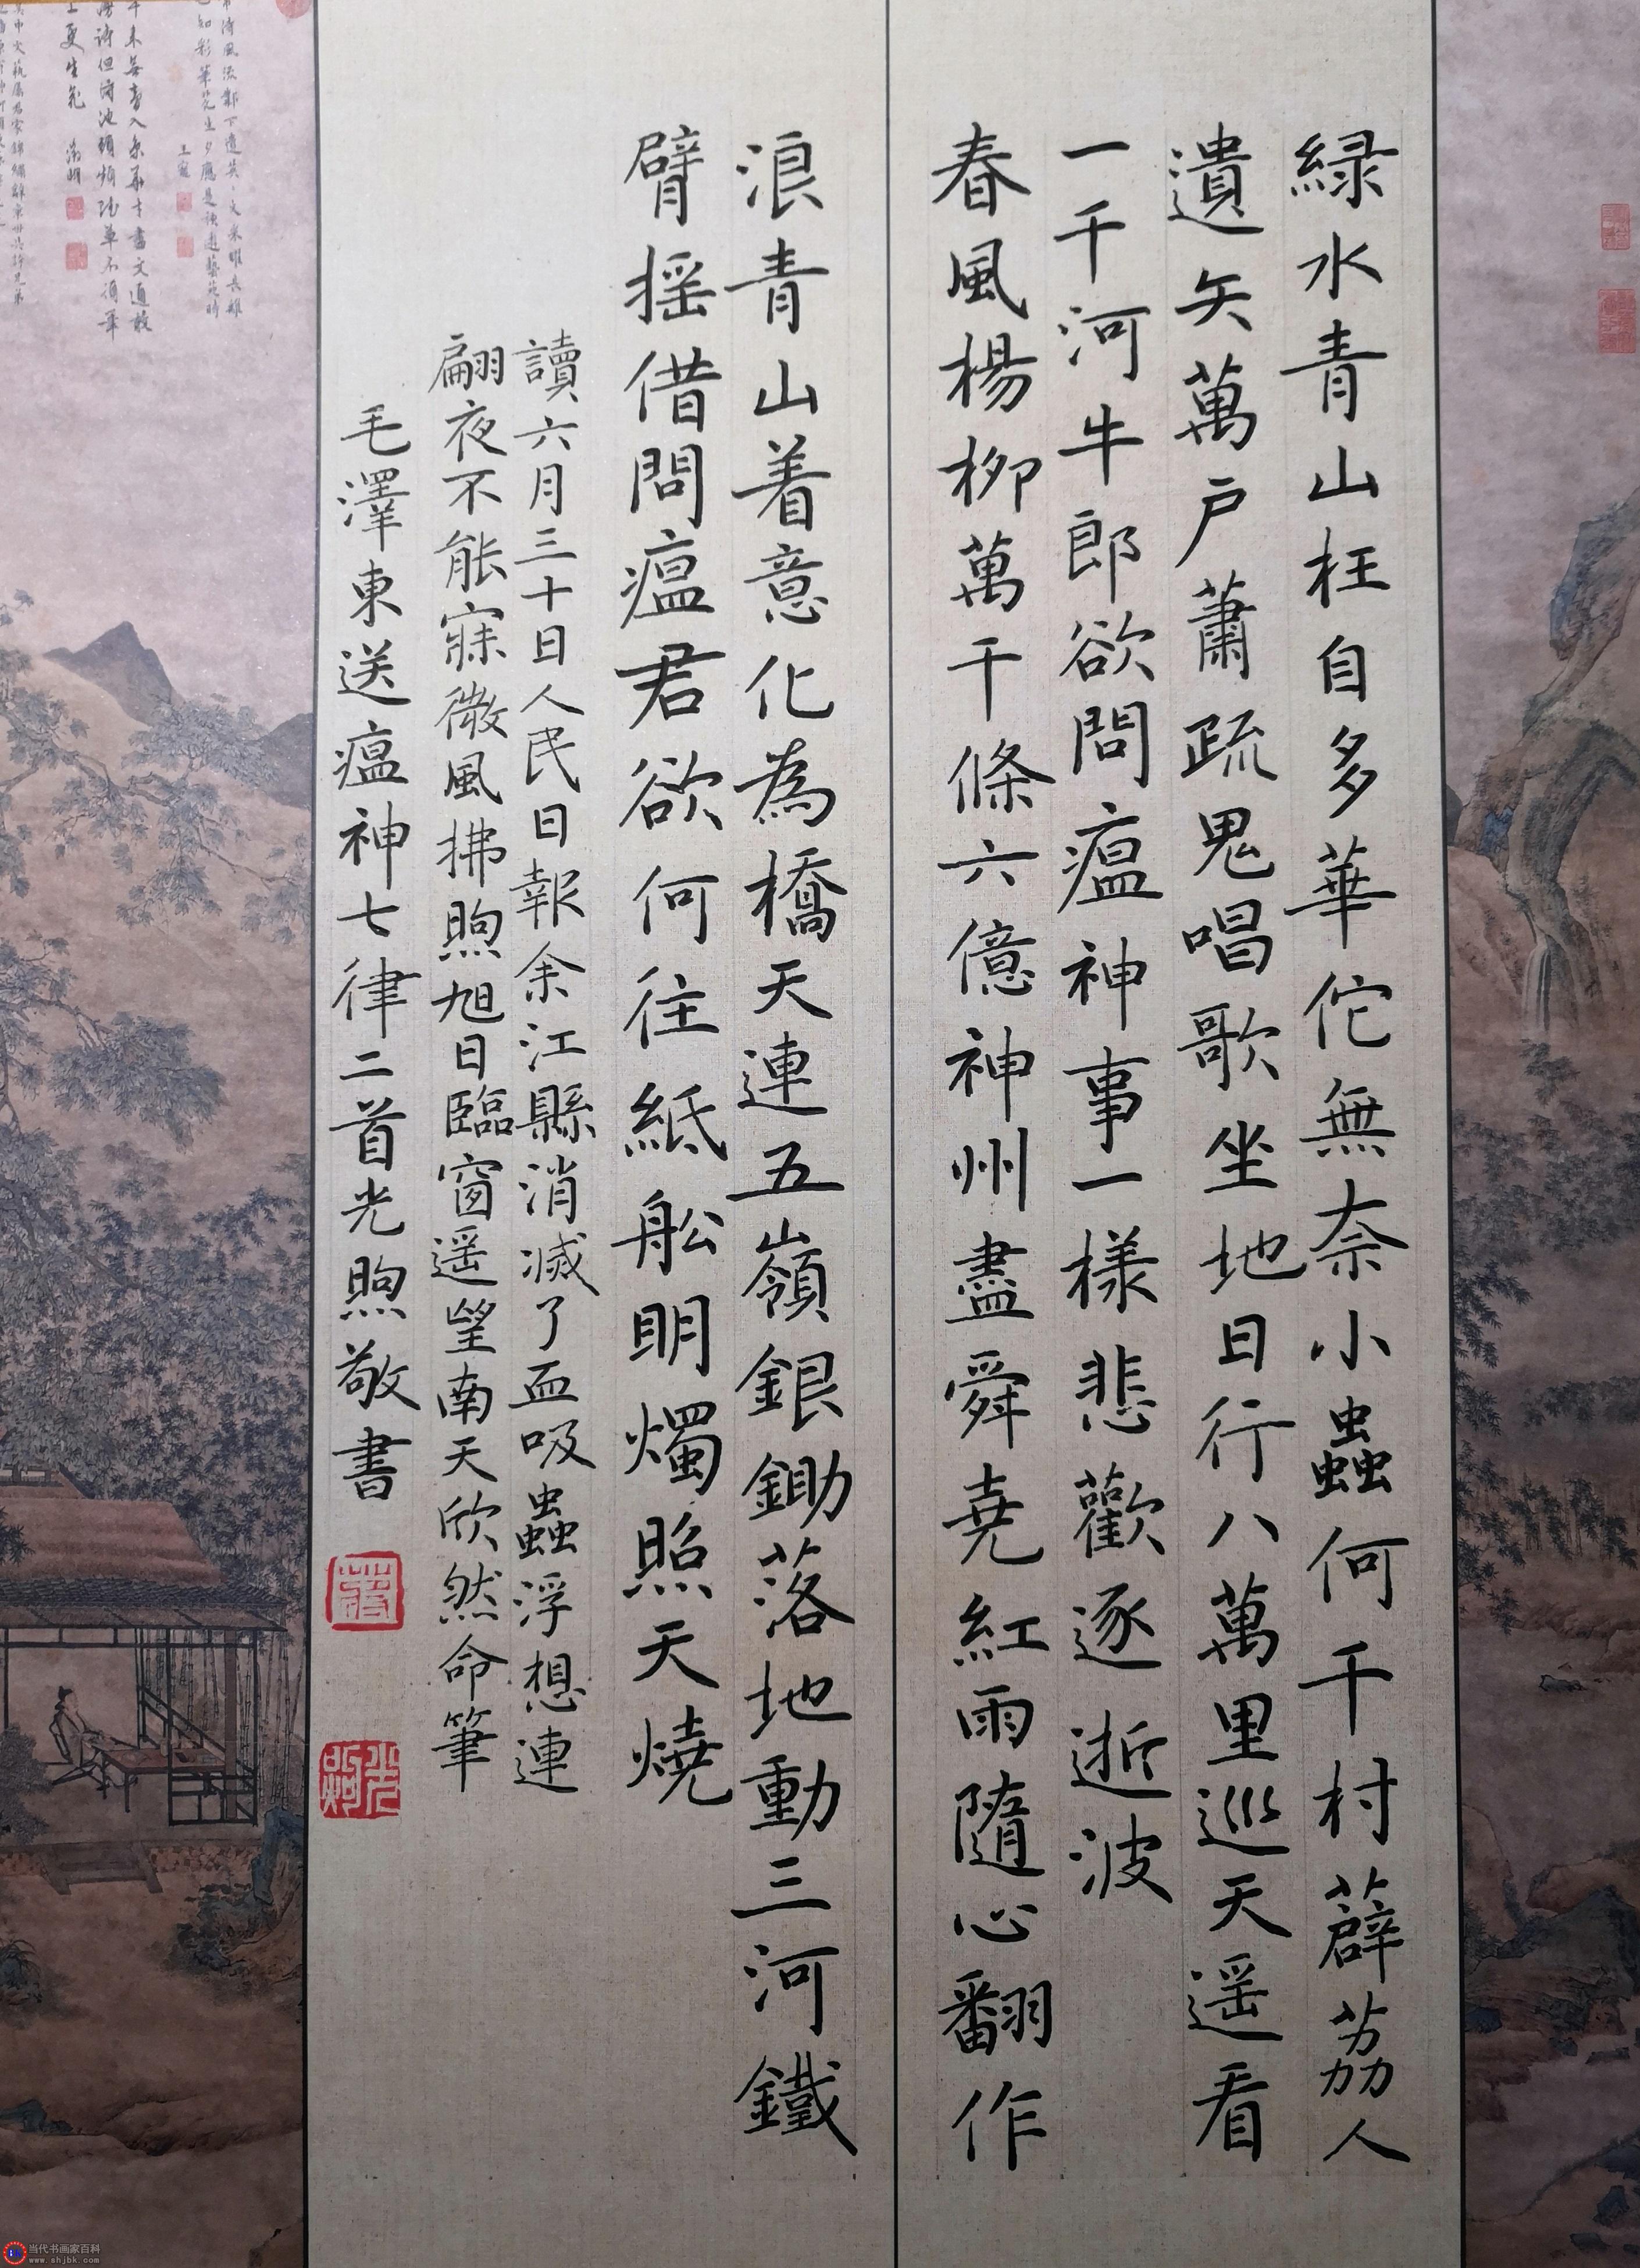 緑水青山枉自多華佗無奈小蟲何千村薜荔人
遺矢萬戶蕭疏鬼唱歌坐地日行八萬里巡天遥看
一千河牛郎欲問瘟神事一樣悲歡逐逝波
春風楊柳萬千條六億神州盡舜堯紅雨隨心翻作
浪青山着意化為橋天連五嶺銀鋤落地動三河鐵
臂摇借問瘟君欲何往紙舩明燭照天燒
讀六月三十日人民日報余江縣消滅了血吸蟲浮想連
翩夜不能寐微風拂煦旭日臨窗遥望南天欣然命筆
毛澤東送瘟神七律二首光煦敬書
光煦
当代书画家百科
www.shjbk.com